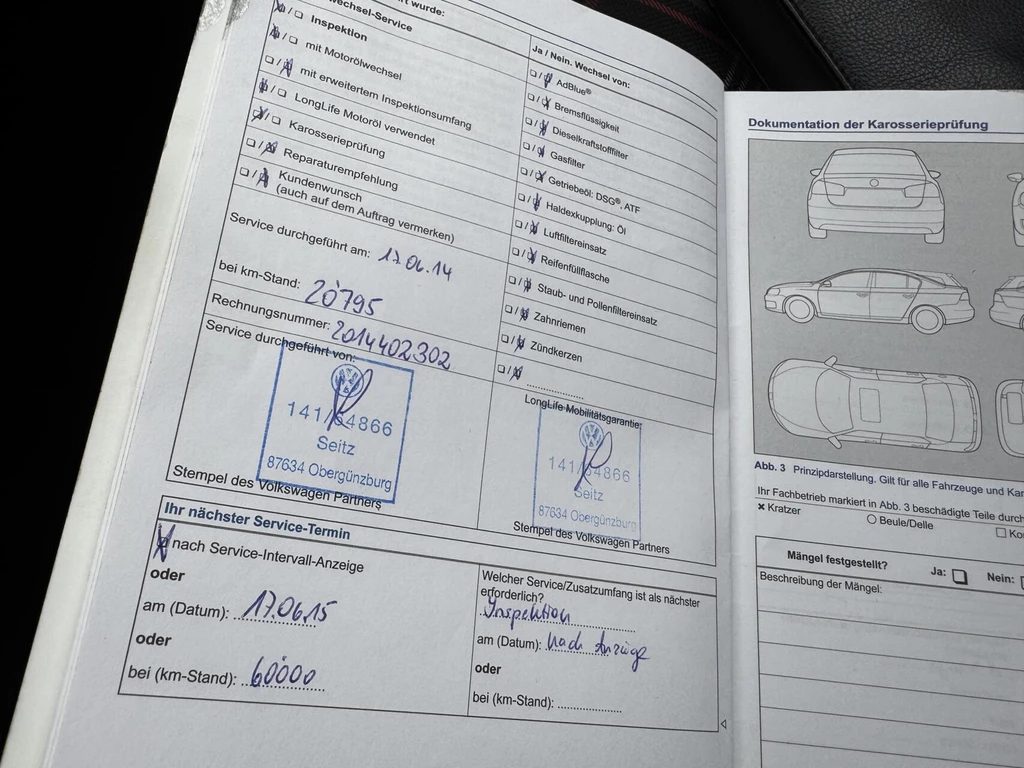 wechsel-Service
☒/☐ Inspektion
☒/☐ mit Motorölwechsel
☐/☒ mit erweitertem Inspektionsumfang
☒/☐ LongLife Motoröl verwendet
☒/☐ Karosserieprüfung
☐/☒ Reparaturempfehlung
☐/☒ Kundenwunsch
(auch auf dem Auftrag vermerken)
Service durchgeführt am: 17.06.14
bei km-Stand: 20795
Rechnungsnummer: 2014402302
Service durchgeführt von:
141/64866
Seitz
87634 Obergünzburg
Stempel des Volkswagen Partners
wurde:
Ja / Nein. Wechsel von:
☐/☒ AdBlue®
☐/☒ Bremsflüssigkeit
☐/☒ Dieselkraftstofffilter
☐/☒ Gasfilter
☐/☒ Getriebeöl: DSG®, ATF
☐/☒ Haldexkupplung: Öl
☐/☒ Luftfiltereinsatz
☐/☒ Reifenfüllflasche
☐/☒ Staub- und Pollenfiltereinsatz
☐/☒ Zahnriemen
☐/☒ Zündkerzen
☐/☒ ................
LongLife Mobilitätsgarantie:
141/64866
Seitz
87634 Obergünzburg
Stempel des Volkswagen Partners
Ihr nächster Service-Termin
☒ nach Service-Intervall-Anzeige
oder
am (Datum): 17.06.15
oder
bei (km-Stand): 60000
Welcher Service/Zusatzumfang ist als nächster
erforderlich?
Inspektion
am (Datum): nach Anzeige
oder
bei (km-Stand): ................
Dokumentation der Karosserieprüfung
Abb. 3 Prinzipdarstellung. Gilt für alle Fahrzeuge und
Ihr Fachbetrieb markiert in Abb. 3 beschädigte Teile durch
× Kratzer
○ Beule/Delle
☐
Mängel festgestellt?
Ja: ☐
Nein:
Beschreibung der Mängel: